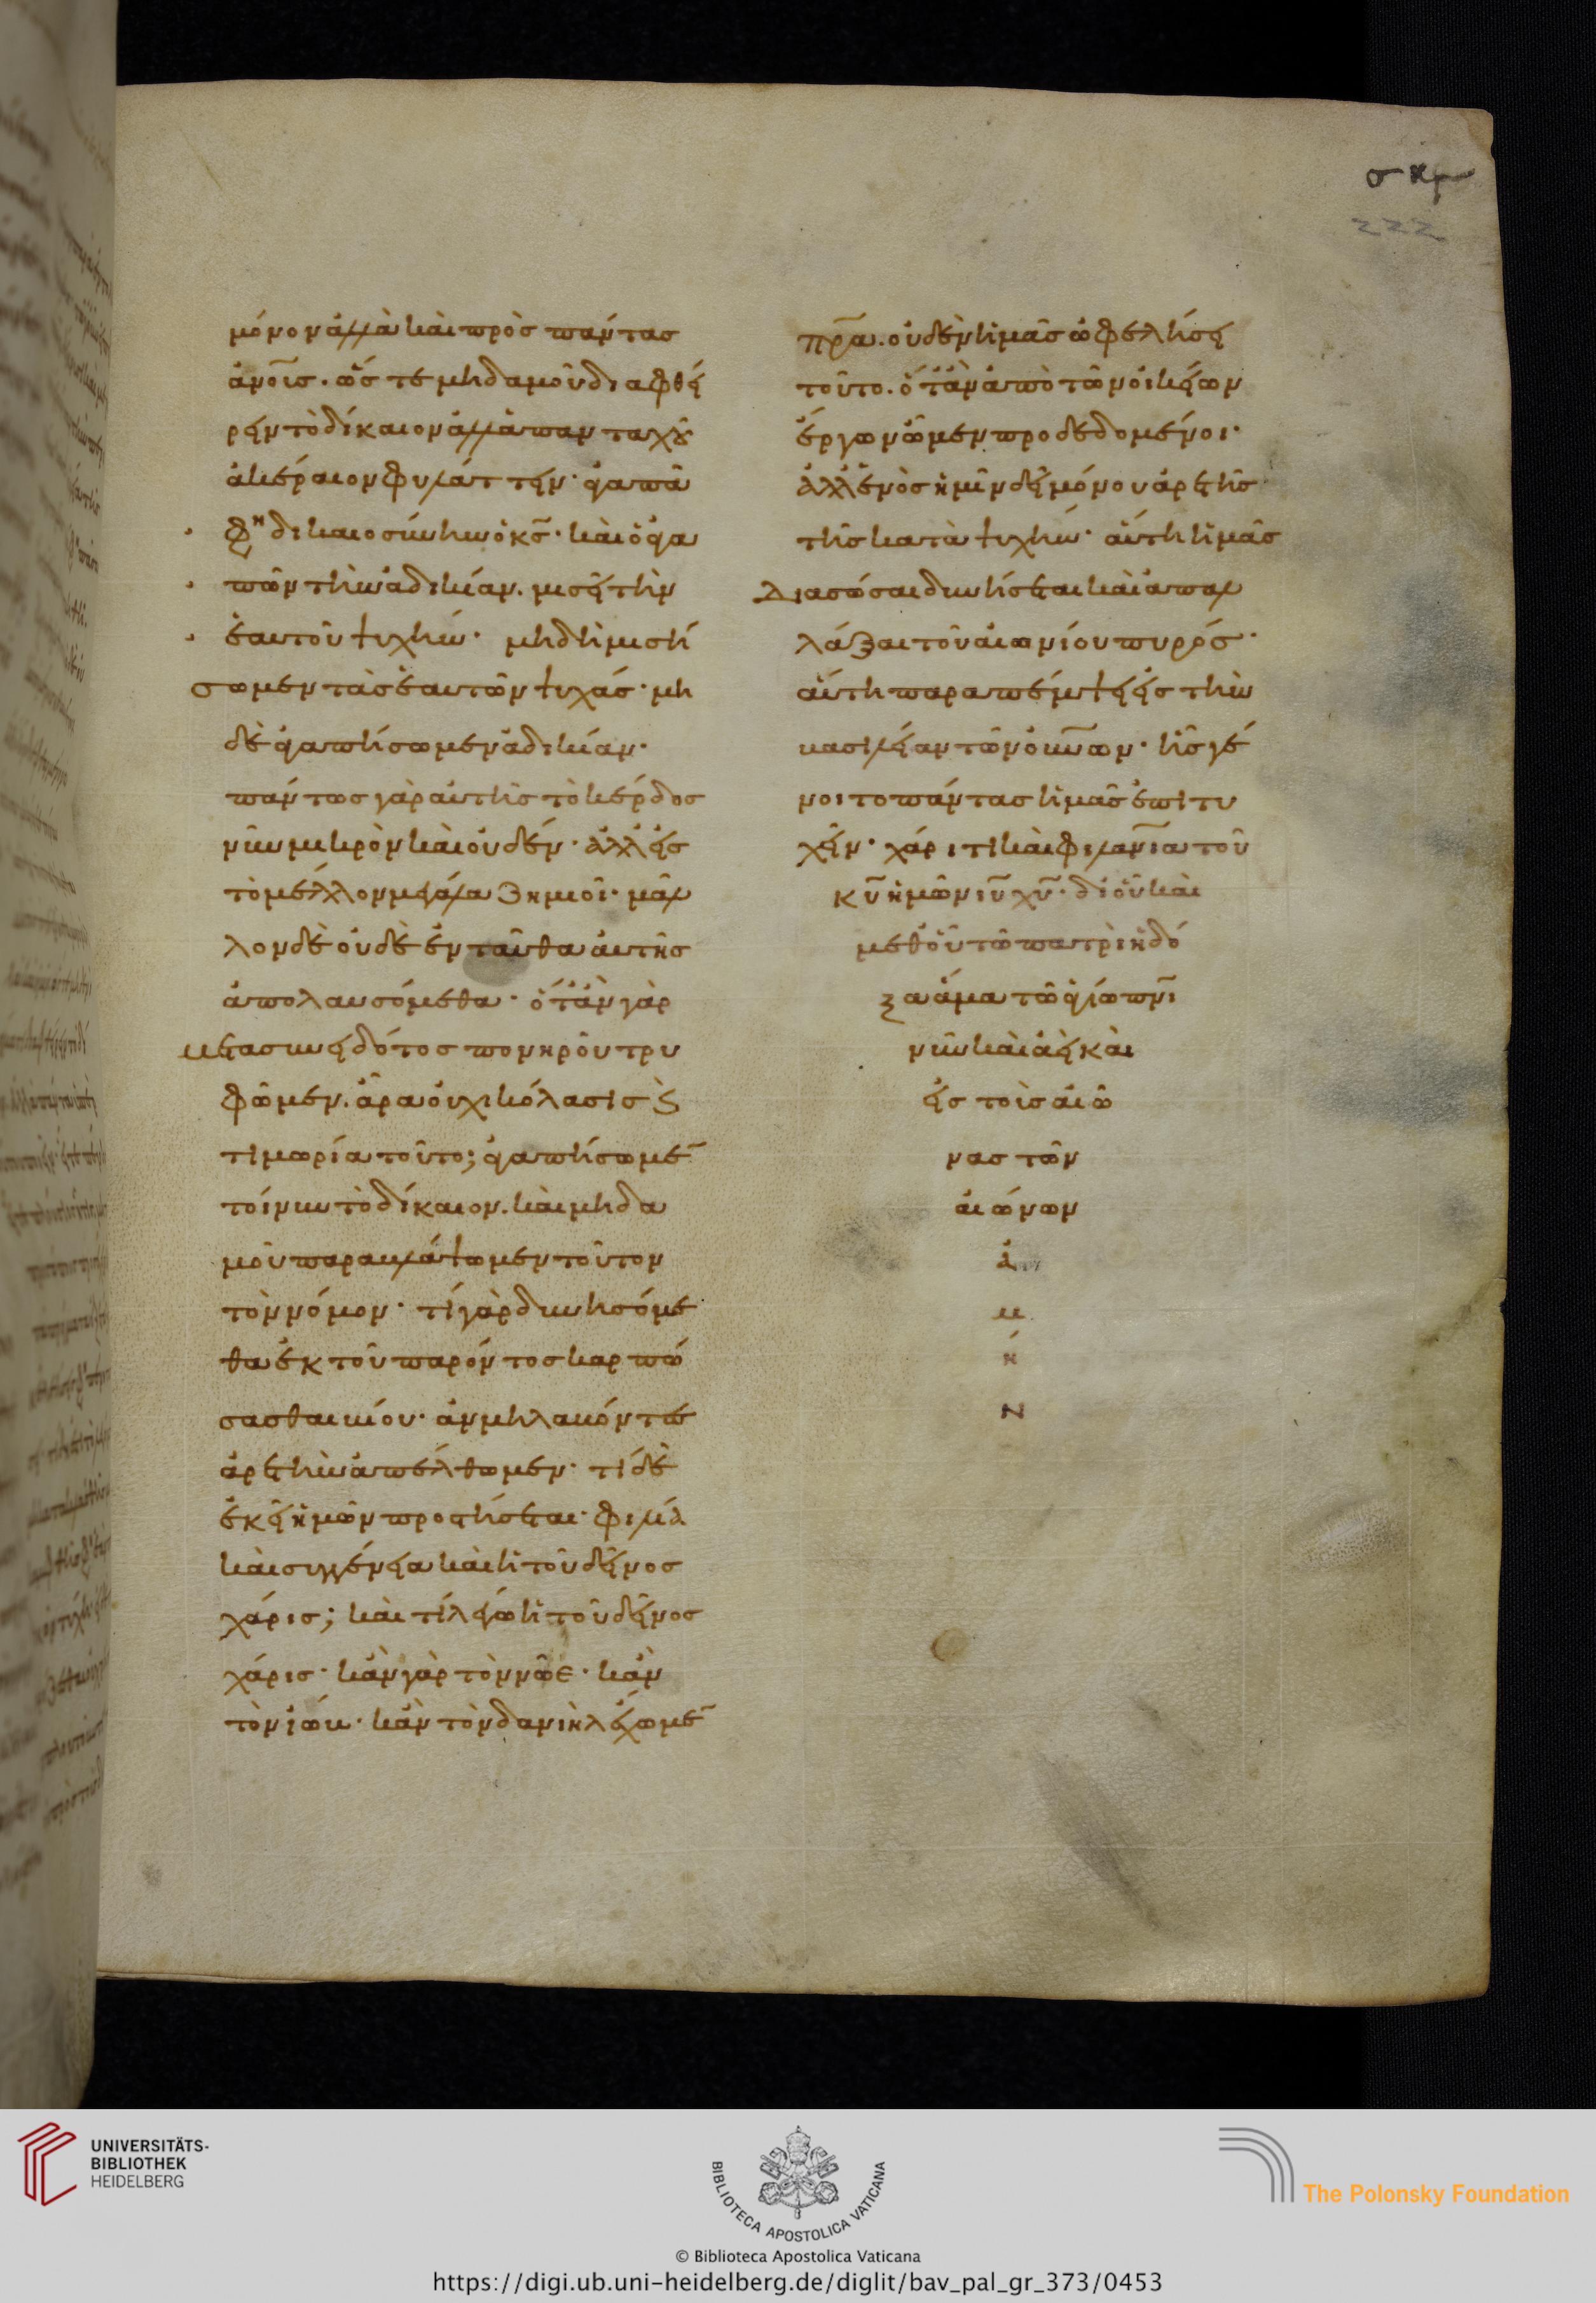 σκγ
222
μόνον ἀλλὰ καὶ πρὸς πάντας
ἀνο͞ις. ὥς τε μηδαμοῦ διαφθεί
ρειν τὸ δίκαιον ἀλλὰ πανταχοῦ
ἀκέραιον φυλάττειν· ἀγαπᾶ
φη δικαιοσύνην ὁ κ͞ς· καὶ ὁ ἀγα
πῶν τὴν ἀδικίαν. μισεῖ τὴν
ἑαυτοῦ ψυχήν· μὴ δὴ μισή
σωμεν τὰς ἑαυτῶν ψυχάς· μη
δὲ ἀγαπήσωμεν ἀδικίαν·
πάντως γὰρ αὐτῆς τὸ κέρδος
νῦν μικρὸν καὶ οὐδέν· ἀλλ εἰς
τὸ μέλλον μεγάλα ζημιοῖ· μᾶλ
λον δὲ οὐδὲ ἐνταῦθα αὐτῆς
ἀπολαυσόμεθα· ὅτ ἂν γὰρ
μετα συνειδότος πονηροῦ τρυ
φῶμεν. ἆρα οὐχι κόλασις ϗ
τιμωρία τοῦτο; ἀγαπήσωμε͞
τοίνυν τὸ δίκαιον. καὶ μηδα
μοῦ παραβλάψωμεν τοῦτον
τὸν νόμον· τί γὰρ δυνησόμε
θα ἐκ τοῦ παρόντος καρπώ
σασθαι βίου· ἂν μὴ λαβόντες
ἀρετὴν ἀπέλθωμεν· τί δὲ
ἐκεῖ ἡμῶν προστήσεται· φιλία
καὶ συγγένεια καὶ ἡ τοῦ δεῖνος
χάρις; καὶ τί λέγω ἡ τοῦ δεῖνος
χάρις· κἂν γὰρ τὸν νῶε· κἂν
τὸν ἰώβ· κἂν τὸν δανιὴλ ἔχωμε͞
π͞ρα. οὐδὲν ἡμᾶς ὠφελήσει
τοῦτο. ὅτ ἂν ἀπὸ τῶν οἰκείων
ἔργων ὦμεν προδεδομένοι·
ἀλλ ἑνὸς ἡμῖν δεῖ μόνου ἀρετῆς
τῆς κατὰ ψυχήν· αὕτη ἡμᾶς
διασῶσαι δυνήσεται καὶ ἀπαλ
λάξαι τοῦ αἰωνίου πυρός·
αὕτη παραπέμψει εἰς τὴν
βασιλείαν τῶν οὐ͞νων· ἧς γέ
νοιτο πάντας ἡμᾶς ἐπιτυ
χεῖν· χάριτι καὶ φιλαν͞ια τοῦ
κ͞υ ἡμῶν ι͞υ χ͞υ· δι οὗ καὶ
μεθ οὗ τῶ πατρὶ ἡ δό
ξα ἅμα τῶ ἁγίω πν͞ι
νῦν καὶ ἀεὶ καὶ
εἰς τοὺς αἰῶ
νας τῶν
αἰώνων
ἀ
μ
ή
ν
UNIVERSITÄTS-
BIBLIOTHEK
HEIDELBERG
BIBLIOTECA APOSTOLICA VATICANA
The Polonsky Foundation
© Biblioteca Apostolica Vaticana
https://digi.ub.uni-heidelberg.de/diglit/bav_pal_gr_373/0453